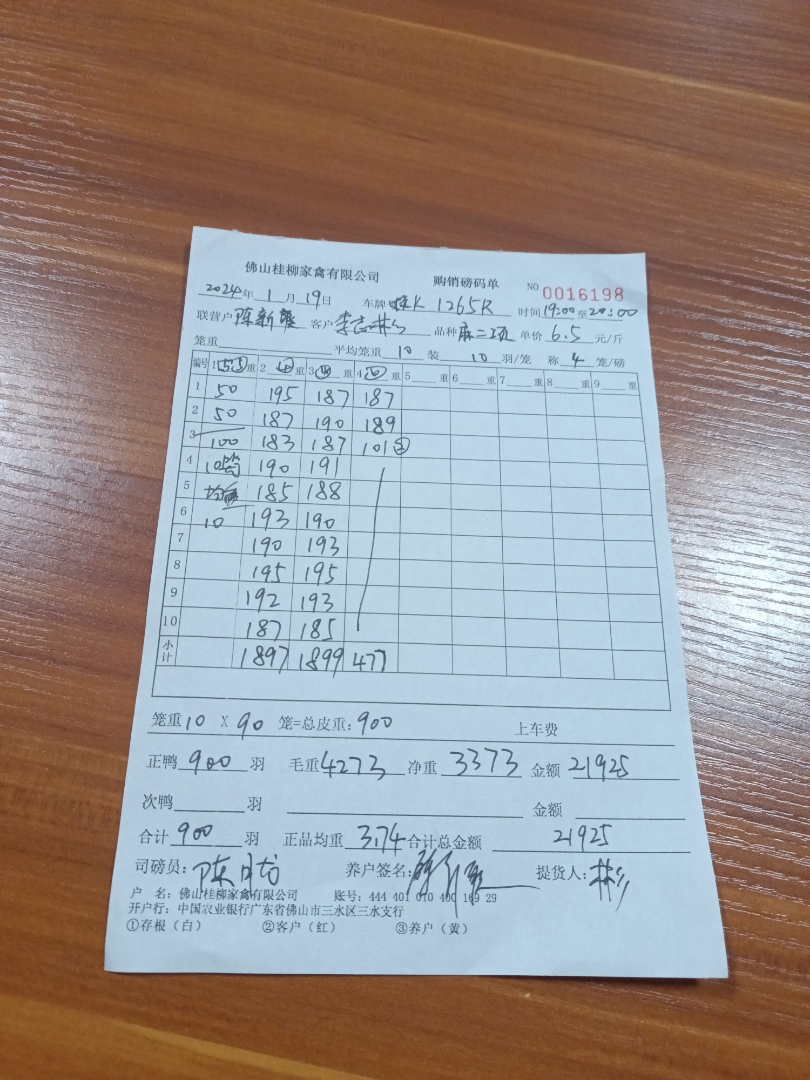 佛山桂柳家禽有限公司 购销磅码单 NO 0016198
2024年1月19日 车牌 K 1265R 时间19:00至20:00
联营户 陈新 客户 李志彬 品种 麻二项 单价 6.5 元/斤
笼重 平均笼重 10 装 10 羽/笼 称 4 笼/磅
编号 1 重 2 ④ 重 3 ④ 重 4 ④ 重 5 重 6 重 7 重 8 重 9 重
1 50 195 187 187
2 50 187 190 189
3 100 183 187 101②
4 10笼 190 191
5 均 185 188
6 10 193 190
7 190 193
8 195 195
9 192 193
10 187 185
小计 1897 1899 477
笼重10 X 90 笼=总皮重:900 上车费
正鸭 900 羽 毛重4273 净重 3373 金额 21925
次鸭 羽 金额
合计 900 羽 正品均重 3.74 合计总金额 21925
司磅员: 陈 养户签名: 提货人: 彬
户 名: 佛山桂柳家禽有限公司 账号: 444 401 010 400 169 29
开户行: 中国农业银行广东省佛山市三水区三水支行
①存根（白） ②客户（红） ③养户（黄）